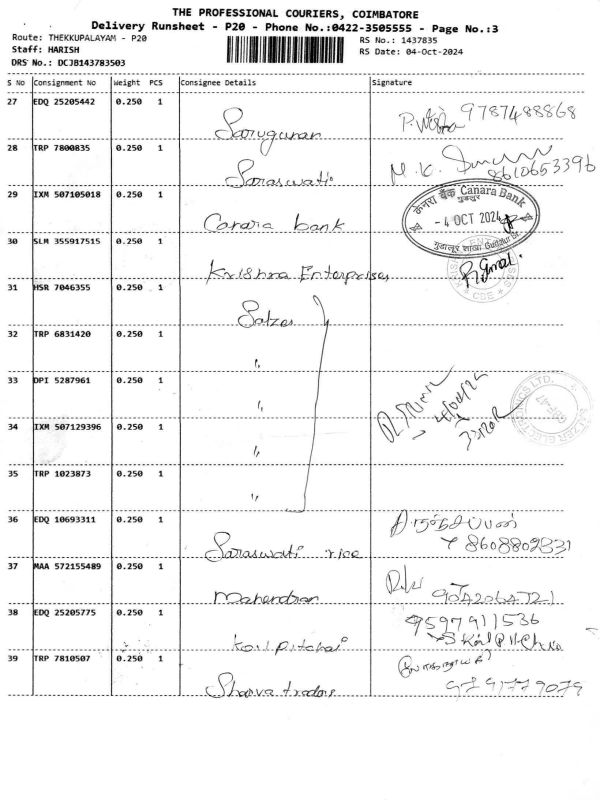 THE PROFESSIONAL COURIERS, COIMBATORE
Delivery Runsheet - P20 - Phone No.:0422-3505555 - Page No.:3
Route: THEKKUPALAYAM - P20
RS No.: 1437835
Staff: HARISH
RS Date: 04-Oct-2024
DRS No.: DCJB143783503
S No Consignment No Weight PCS Consignee Details Signature
27 EDQ 25205442 0.250 1
Sarugunan 9787488868
28 TRP 7800835 0.250 1
Saraswati M.K. 8610653396
29 IXM 507105018 0.250 1
Canara bank
केनरा बैंक Canara Bank
- 4 OCT 2024
30 SLM 355917515 0.250 1
Krishna Enterprises
31 HSR 7046355 0.250 1
Salzer
32 TRP 6831420 0.250 1
"
33 DPI 5287961 0.250 1
"
34 IXM 507129396 0.250 1
"
35 TRP 1023873 0.250 1
"
36 EDQ 10693311 0.250 1
Saraswati rice 8608809331
37 MAA 572155489 0.250 1
Mahendran 9042064721
38 EDQ 25205775 0.250 1
9597911536
Koilpitchai
39 TRP 7810507 0.250 1
Sharva traders 9791779079